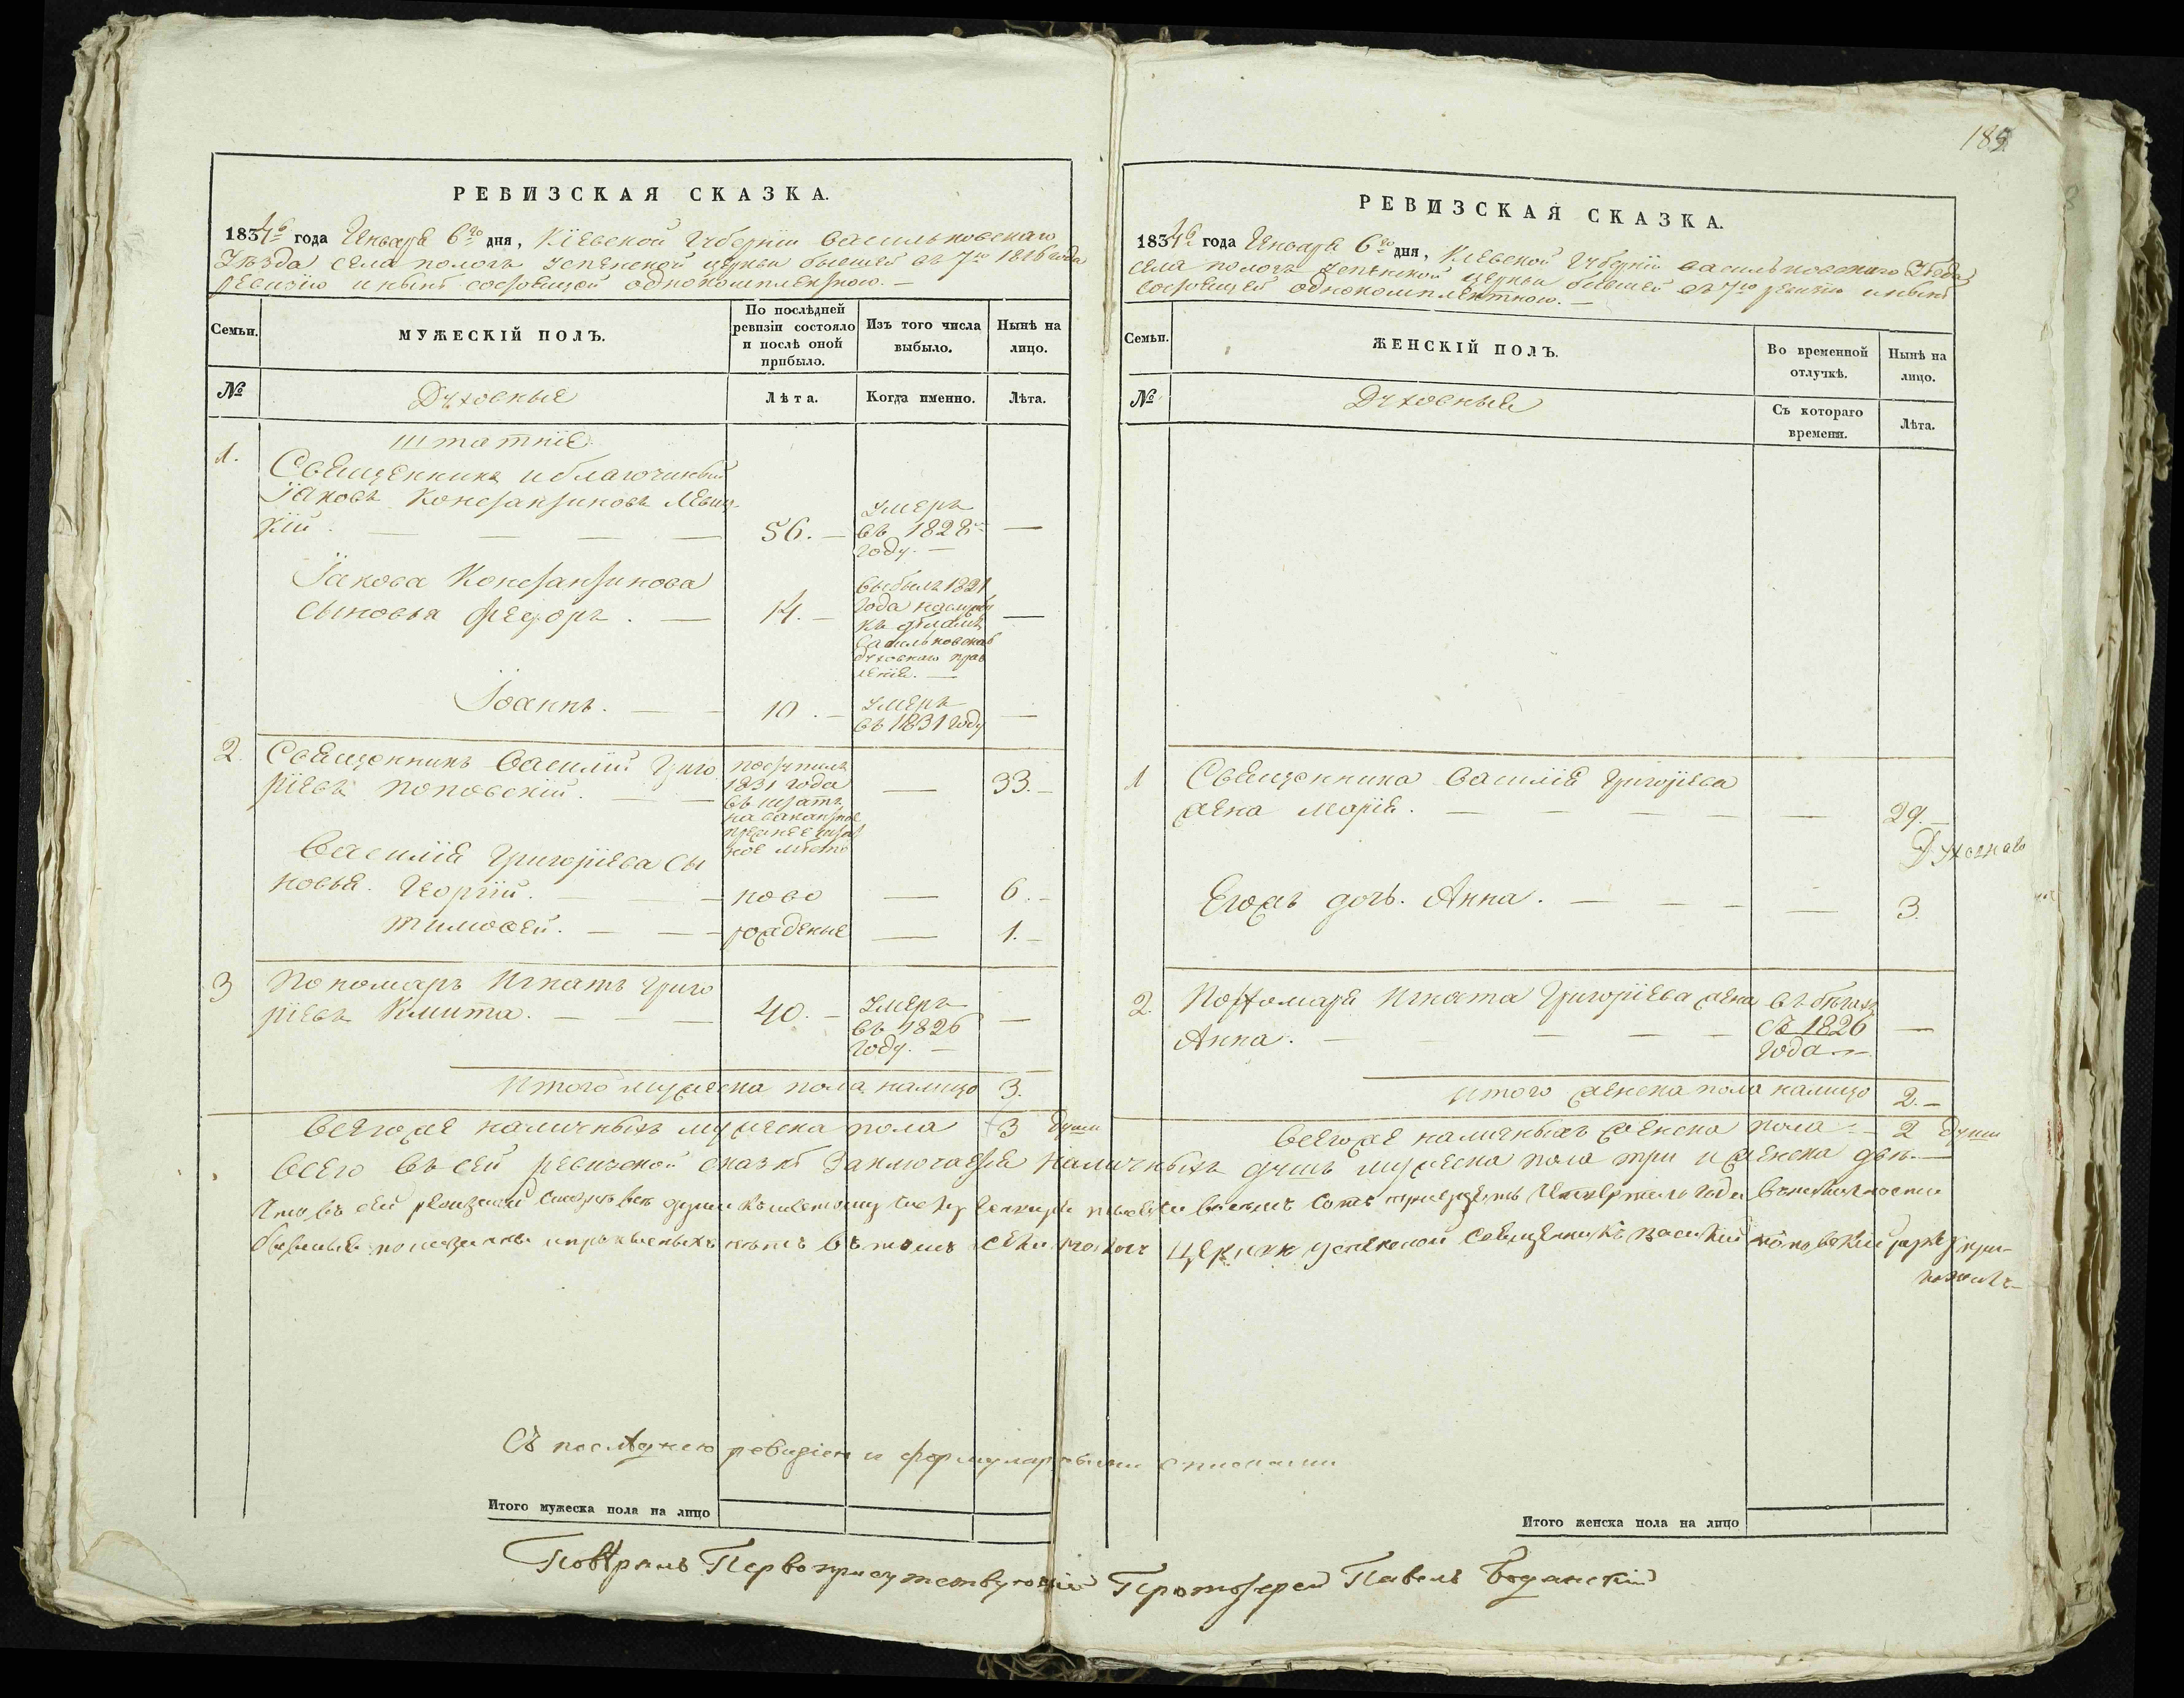 185
РЕВИЗСКАЯ СКАЗКА.
1834го года Генваря 6го дня, Кіевской Губерніи Васильковскаго
Уѣзда села Пологъ Успенской церкви бывшей въ 7ю 1816 года
ревизію и нынѣ состоящей однокомплектною. —
Семьи.
МУЖЕСКІЙ ПОЛЪ.
По послѣдней ревизіи состояло и послѣ оной прибыло.
Изъ того числа выбыло.
Нынѣ на лицо.
№
Духовные
Лѣта.
Когда именно.
Лѣта.
штатніе
1.
Священникъ и благочинный
Іаковъ Константиновъ Левиц-
кій. — 56. — умеръ въ 1828м году. — —
Іакова Константинова
сыновья Феодоръ. — 14. — выбылъ 1821 года къ дѣламъ Васильковскаго духовнаго правленія. — —
Іоаннъ. — 10. — умеръ въ 1831 году —
2.
Священникъ Василій Григо
ріевъ Поповскій. — поступилъ 1831 года въ штатъ на вакантное мѣсто — 33. —
Василія Григоріева сы
новья. Георгій. — ново — 6. —
Тимофей. — рожденые — 1. —
3
Пономаръ Игнатъ Григо
ріевъ Кмита. — 40. — умеръ въ 1826 году. — —
Итого мужеска пола налицо 3.
Всегоже наличныхъ мужеска пола 3 души
РЕВИЗСКАЯ СКАЗКА.
1834го года Генваря 6го дня, Кіевской Губерніи Васильковскаго Уѣзда
села Пологъ Успенской церкви бывшей въ 7ю ревизію и нынѣ
состоящей однокомплектною. —
Семьи.
ЖЕНСКІЙ ПОЛЪ.
Во временной отлучкѣ.
Нынѣ на лицо.
№
Духовныя
Съ котораго времени.
Лѣта.
1
Священника Василія Григоріева
жена Марія. — 29. —
Духовнаго
Егожъ дочь. Анна. — 3.
2.
Пономаря Игната Григоріева жена
Анна. — въ бѣгахъ съ 1826 года — —
Итого женска пола налицо 2. —
Всегоже наличныхъ женска пола — 2 души
Всего въ сей ревизской сказкѣ заключается наличныхъ душъ мужеска пола три и женска двѣ. —
Что въ сей ревизской сказкѣ всѣ души къ шестому числу Генваря тысяча восемь сотъ тридцать четвертаго года въ наличности
бывшыя показаны и прописныхъ нѣтъ въ томъ села Пологъ церкви Успенской священникъ Василій Поповскій руку при-
ложилъ —
Съ послѣднею ревизіею и формулярными списками
Итого мужеска пола на лицо
Итого женска пола на лицо
Повѣрялъ Первоприсутствующій Протоіерей Павелъ Боданскій